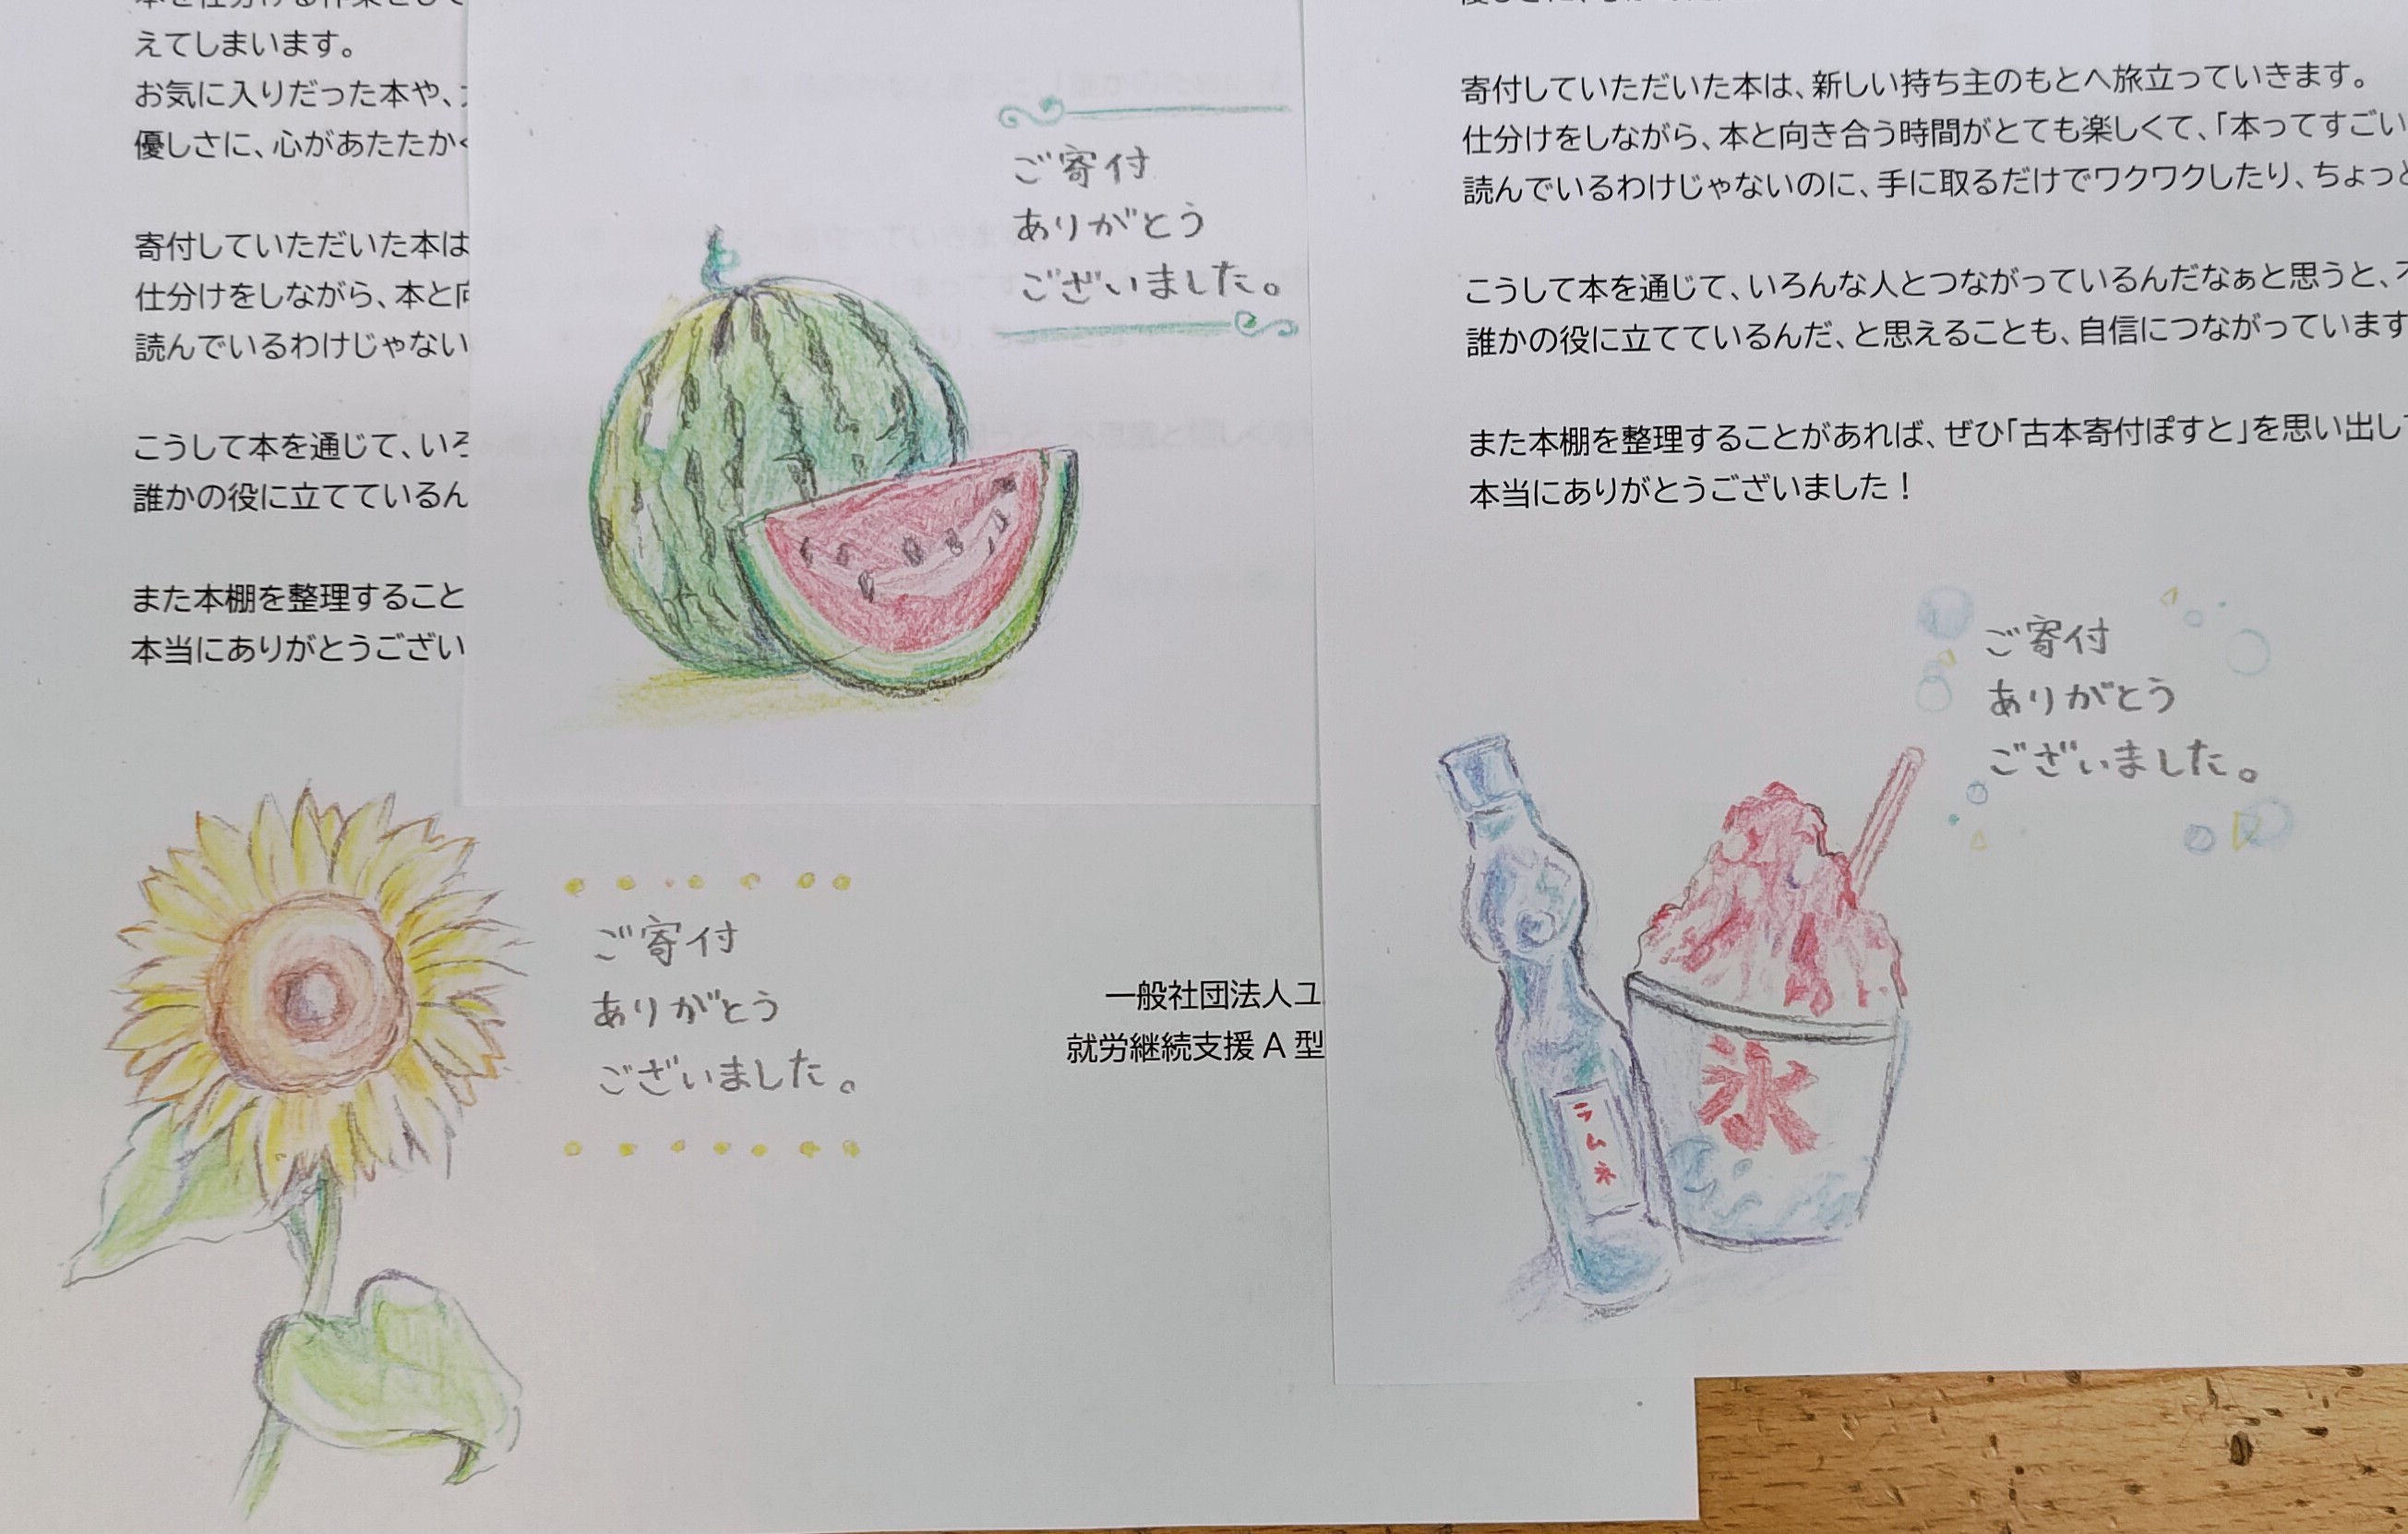 えてしまいます。
お気に入りだった本や、
優しさに、心があたたかく
寄付していただいた本は
仕分けをしながら、本と向
読んでいるわけじゃない
こうして本を通じて、いろ
誰かの役に立てているん
また本棚を整理すること
本当にありがとうござい
ご寄付
ありがとう
ございました。
一般社団法人ユ
就労継続支援 A 型
ご寄付
ありがとう
ございました。
寄付していただいた本は、新しい持ち主のもとへ旅立っていきます。
仕分けをしながら、本と向き合う時間がとても楽しくて、「本ってすごい
読んでいるわけじゃないのに、手に取るだけでワクワクしたり、ちょっと
こうして本を通じて、いろんな人とつながっているんだなぁと思うと、不
誰かの役に立てているんだ、と思えることも、自信につながっています
また本棚を整理することがあれば、ぜひ「古本寄付ぽすと」を思い出して
本当にありがとうございました！
ご寄付
ありがとう
ございました。
ラムネ
氷